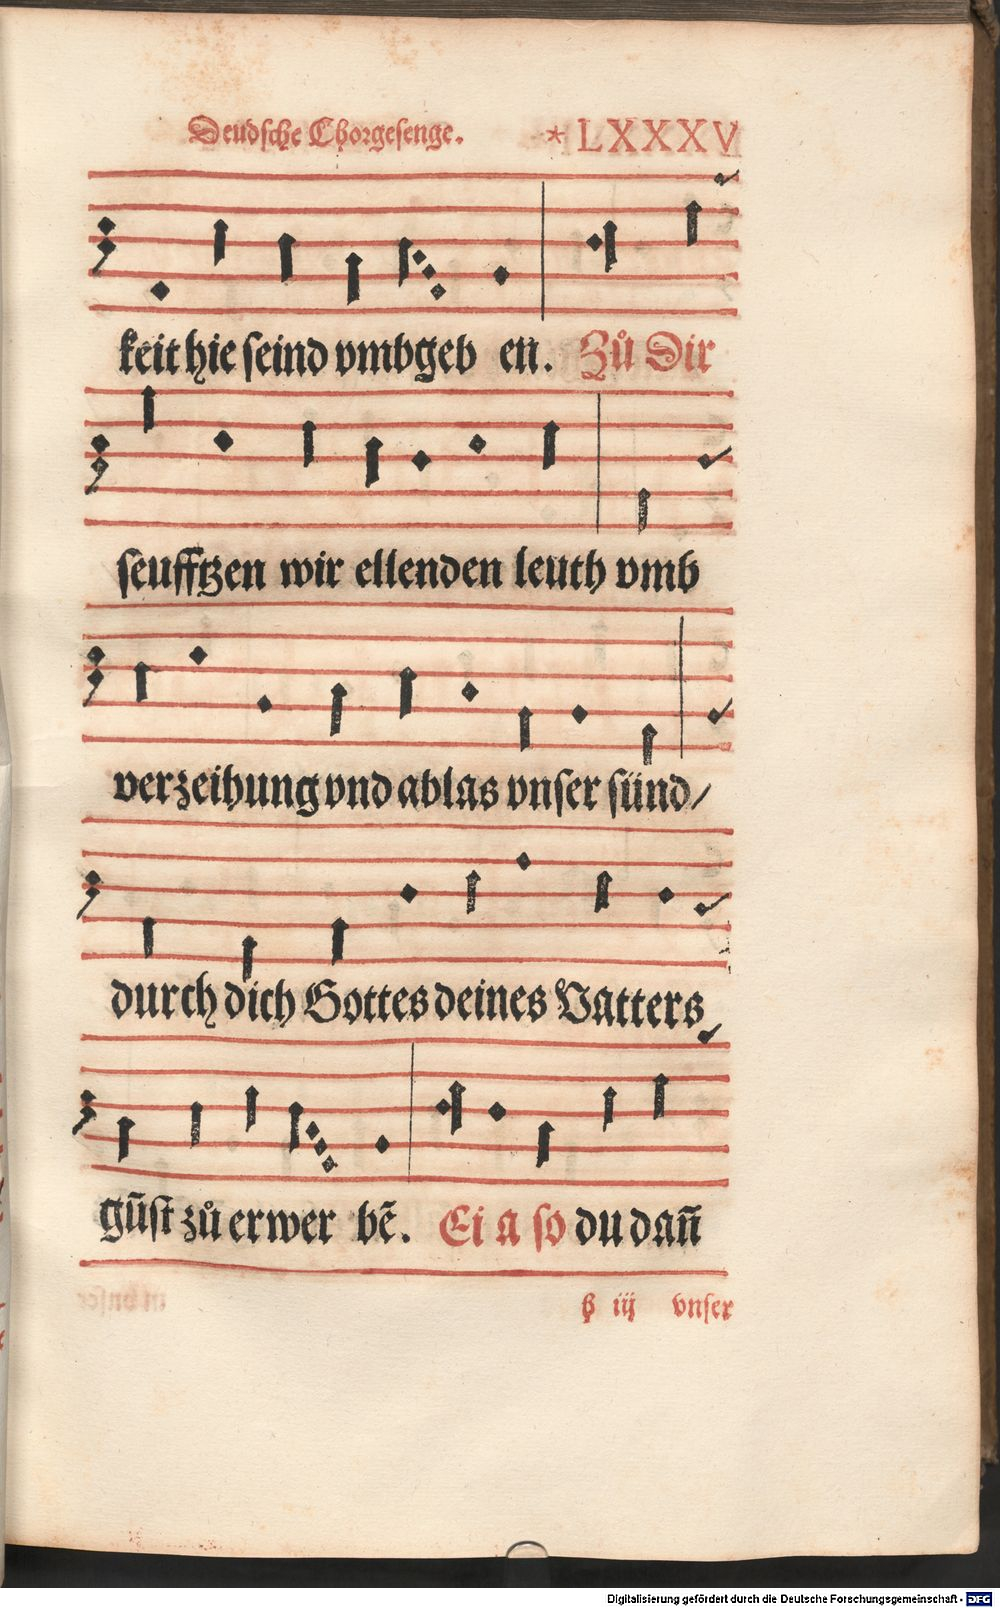 Deudsche Chorgesenge. * LXXXV
keit hie seind vmbgeb en. Zů Dir
seufftzen wir ellenden leuth vmb
verzeihung vnd ablas vnser sünd/
durch dich Gottes deines Vatters
gūst zů erwer bē. Ei a so du dañ
h iij vnser
Digitalisierung gefördert durch die Deutsche Forschungsgemeinschaft - DFG